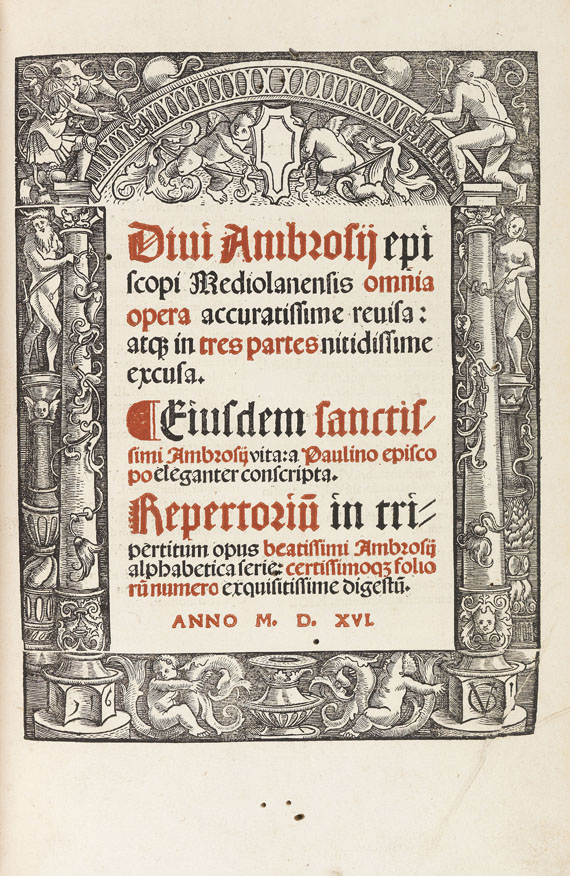 Diui Ambrosij epi
scopi Mediolanensis omnia
opera accuratissime reuisa:
atqꝫ in tres partes nitidissime
excusa.
¶ Eiusdem sanctis⸗
simi Ambrosij vita: a Paulino episco
po eleganter conscripta.
Repertoriū in tri⸗
pertitum opus beatissimi Ambrosij
alphabetica serie: certissimoqꝫ folio
rū numero exquisitissime digestū.
ANNO M. D. XVI.
VG